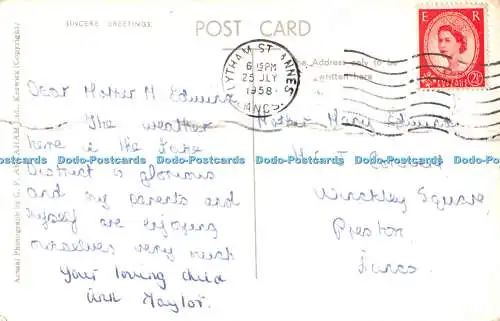 SINCERE GREETINGS
POST CARD
Actual Photograph by G. P. ABRAHAM Ltd., Keswick (Copyright)
LYTHAM ST ANNES
6 15PM
25 JLY
1958
LANCS.
Address only to be
written here
E R
2½D
Dear Mother M Edmund
The weather
here in the Lake
District is glorious
and my parents and
myself are enjoying
ourselves very much
Your loving child
Ann Taylor.
Mother Mary Edmund
Convent
Winckley Square
Preston
Lancs.
Dodo-Postcards Dodo-Postcards Dodo-Postcards Dodo-Postcards Dodo-Postcards Dodo-Postcards